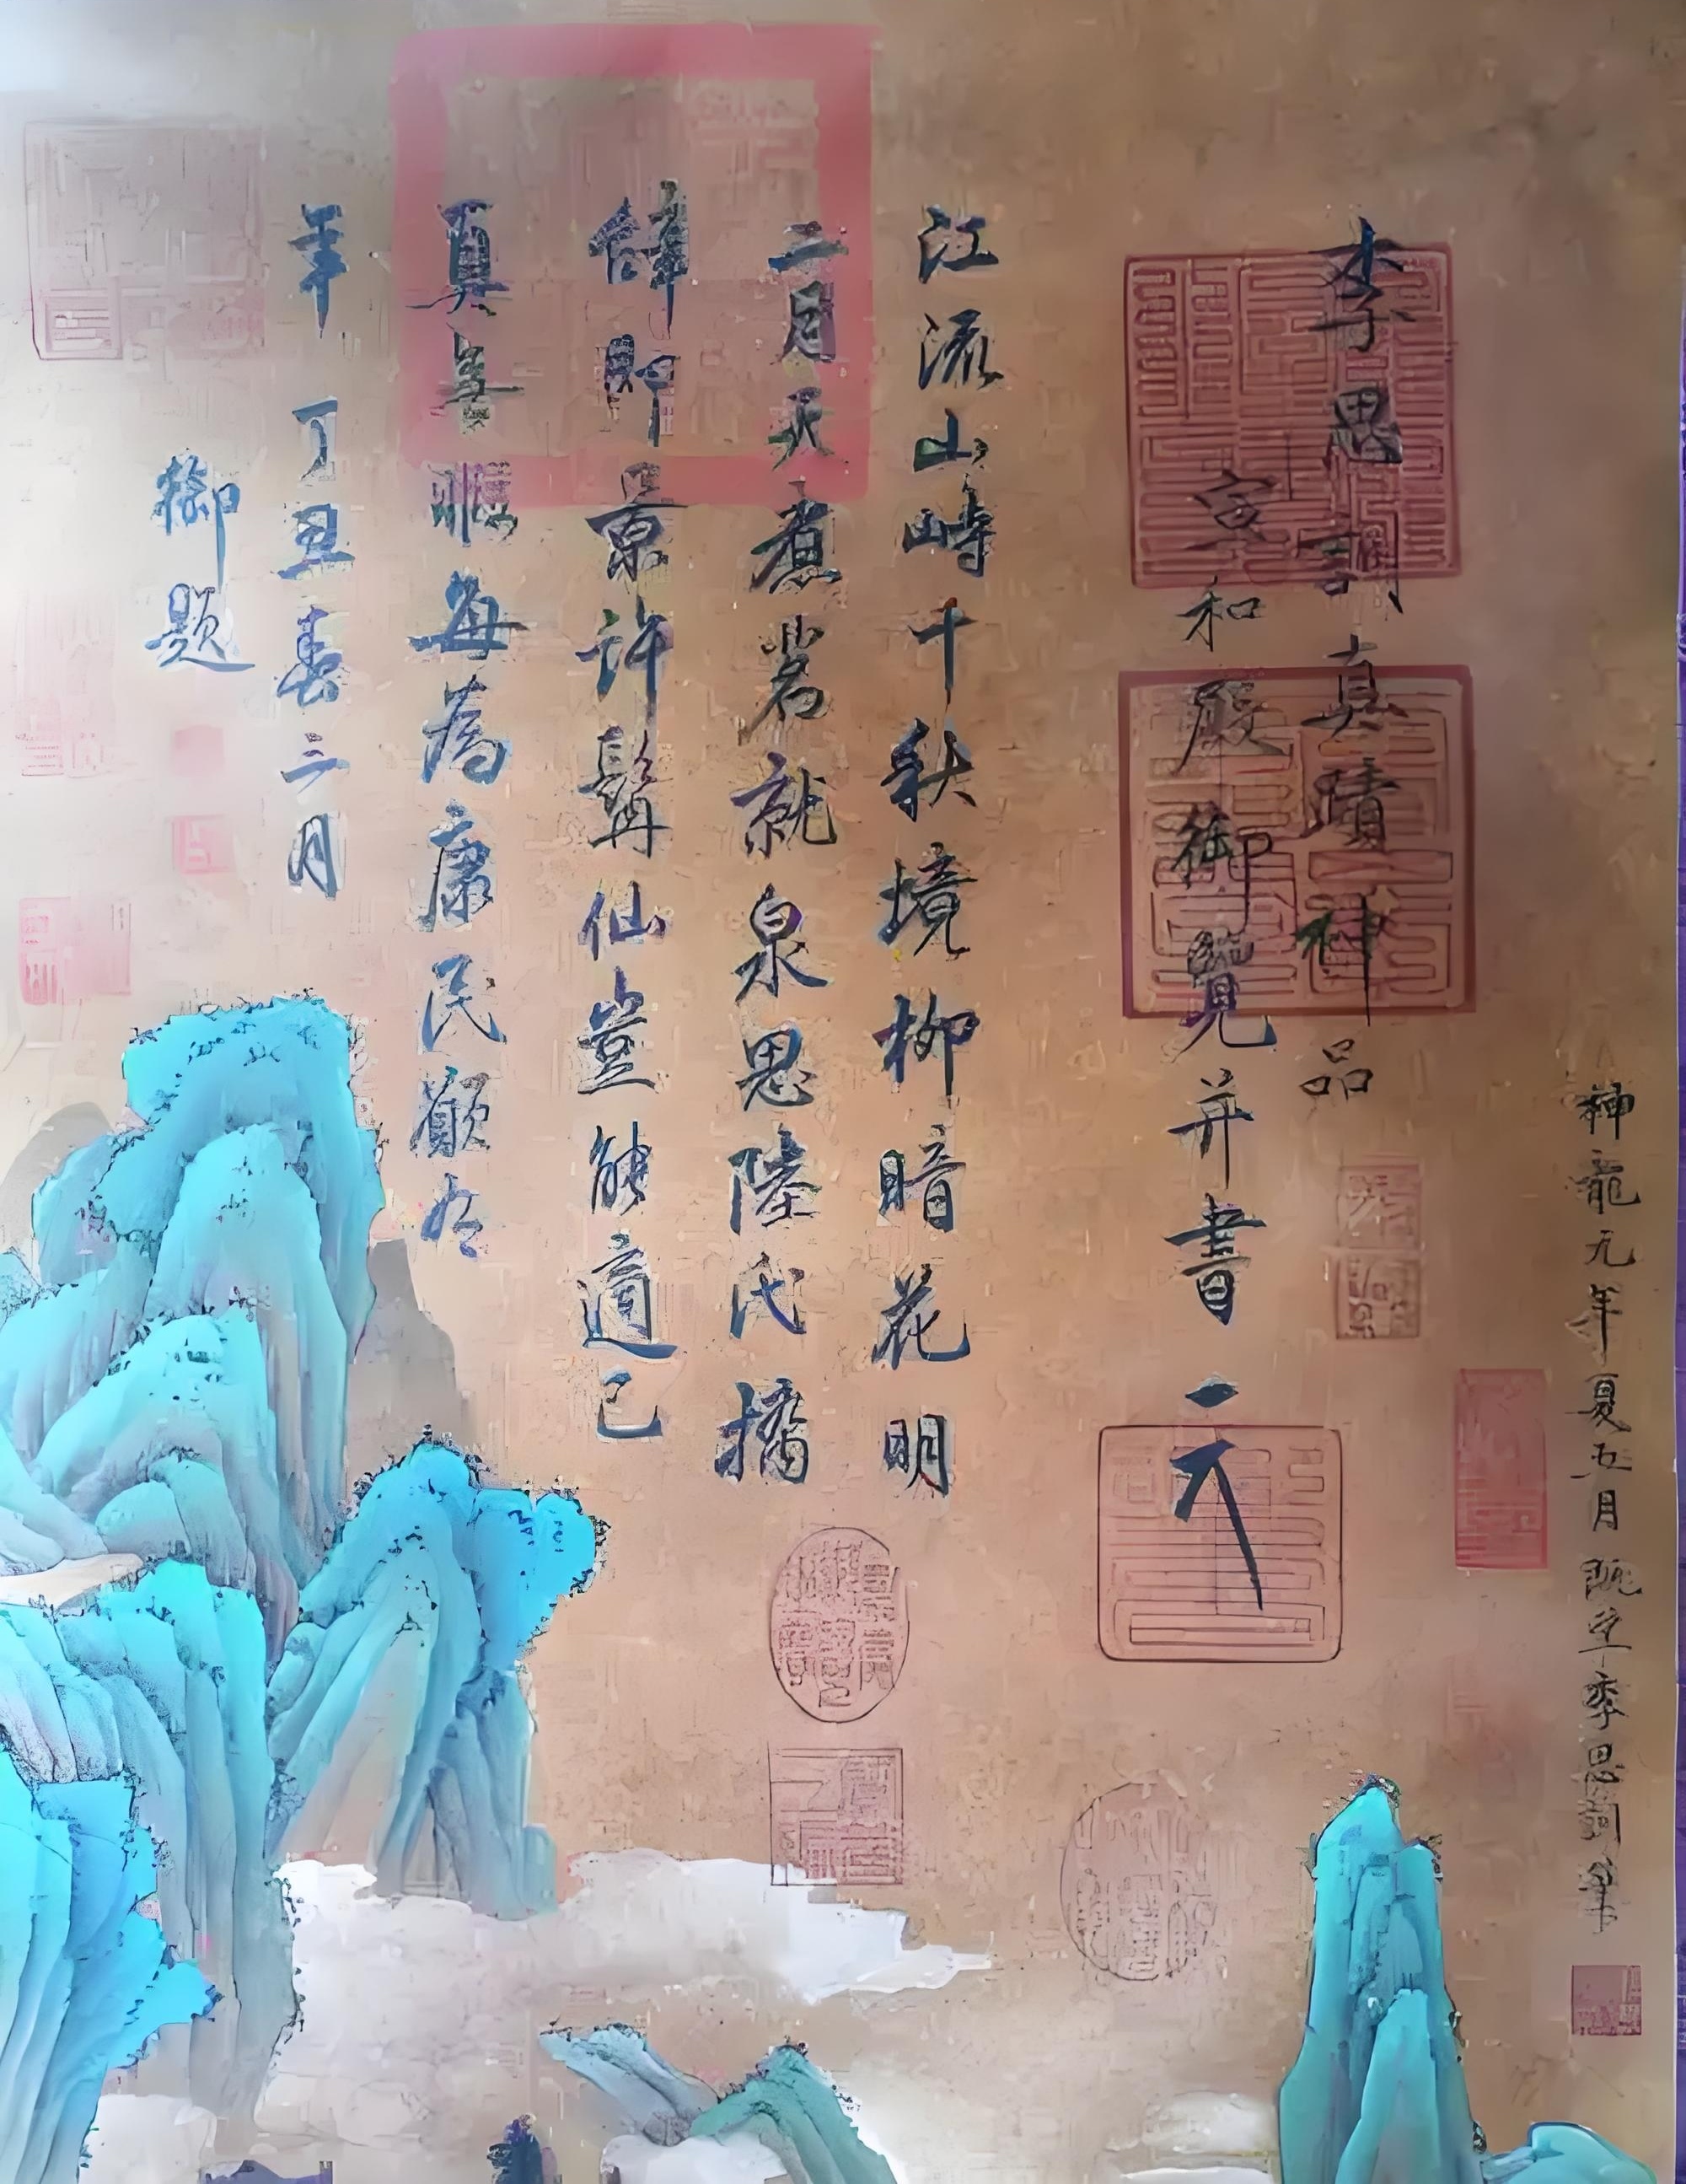 神龍元年夏五月既望李思訓筆
李思訓真蹟神品
宣和殿御覽并書
江流山峙千秋境柳暗花明
二月天煮茗就泉思陸氏攜
即景許髯仙豈能適己
真無每為康民願有
年丁丑春三月
御題